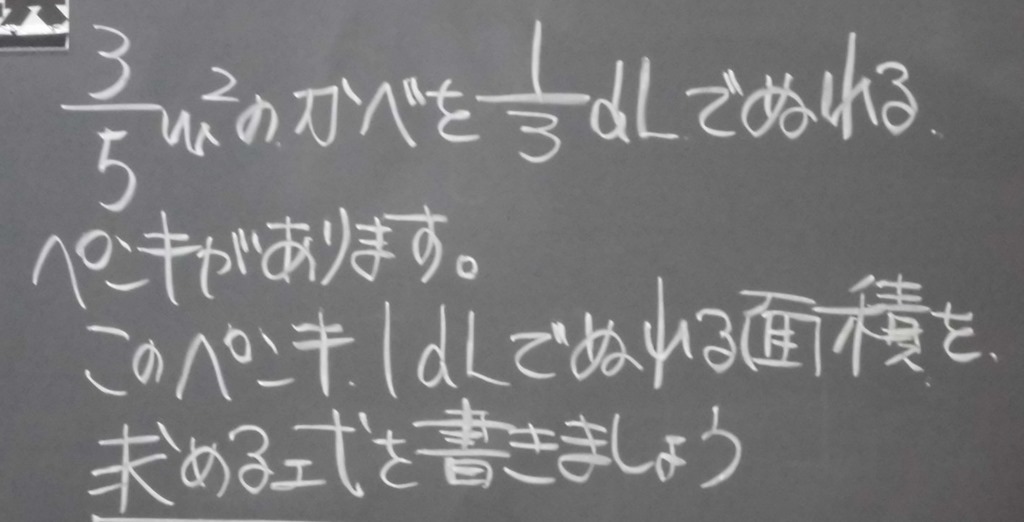 3/5 m²のかべを1/3 dLでぬれる
ペンキがあります。
このペンキ1dLでぬれる面積を
求める式を書きましょう